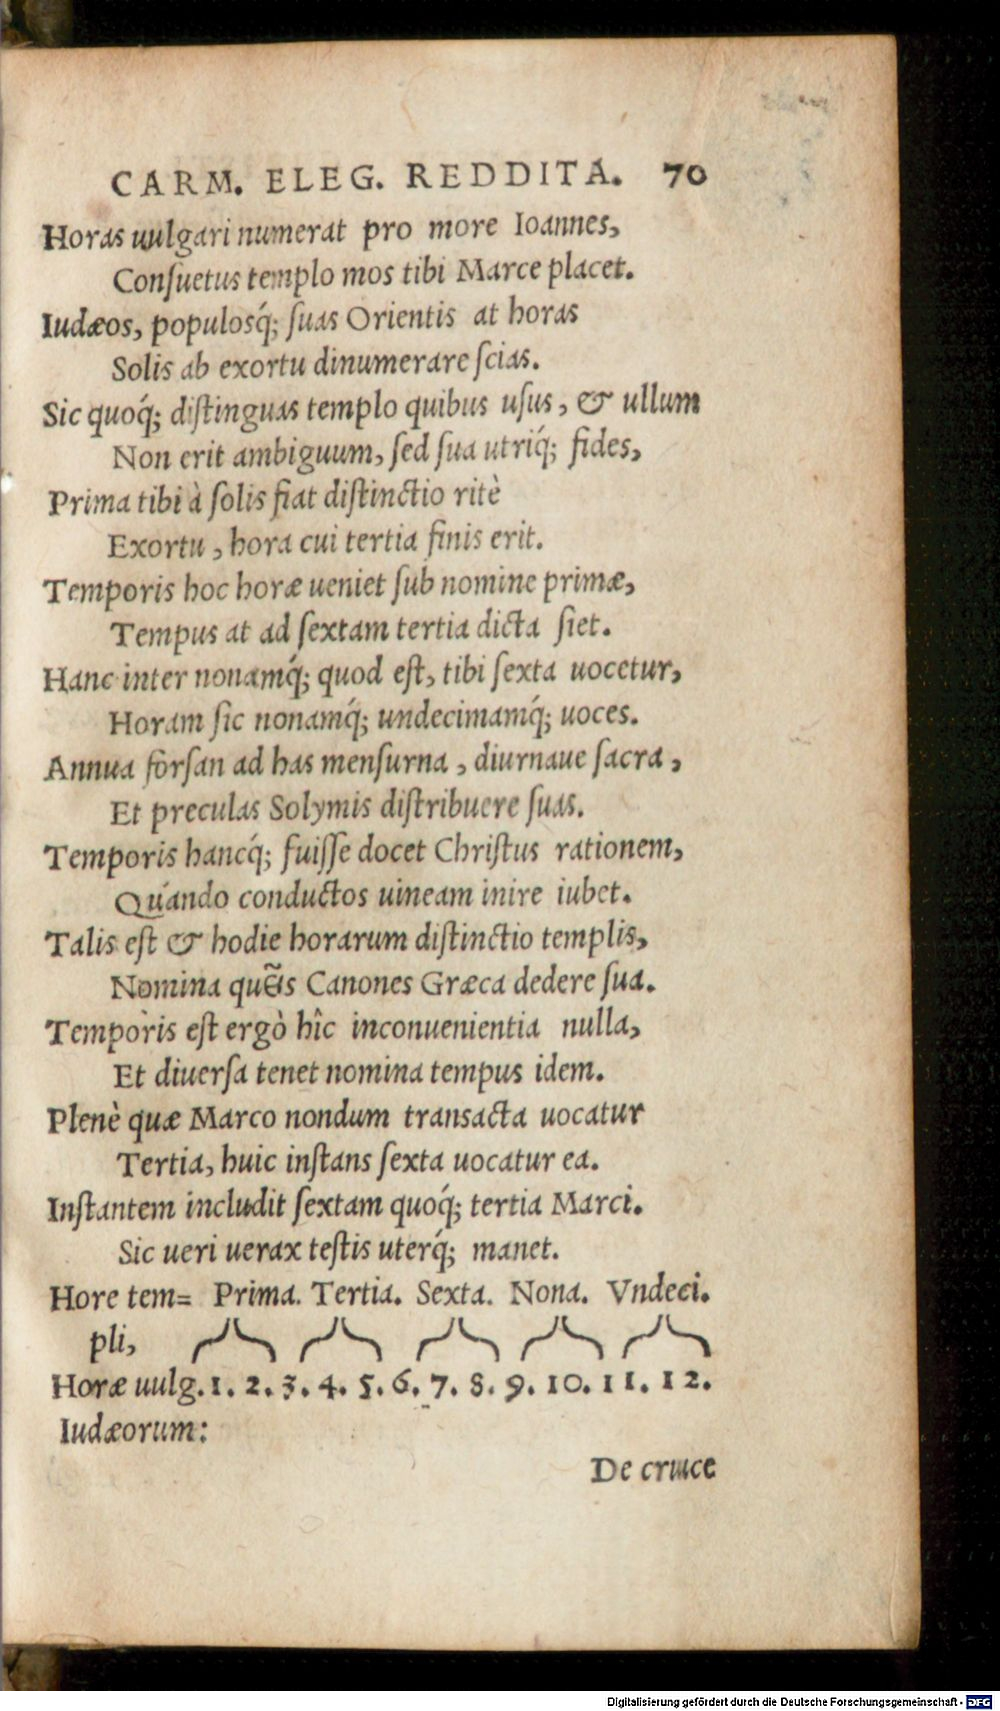 CARM. ELEG. REDDITA. 70
Horas uulgari numerat pro more Ioannes,
Conſuetus templo mos tibi Marce placet.
Iudæos, populosq́; ſuas Orientis at horas
Solis ab exortu dinumerare ſcias.
Sic quoq́; diſtinguas templo quibus uſus, & ullum
Non erit ambiguum, ſed ſua utriq́; fides,
Prima tibi à ſolis fiat diſtinctio ritè
Exortu, hora cui tertia finis erit.
Temporis hoc horæ ueniet ſub nomine primæ,
Tempus at ad ſextam tertia dicta fiet.
Hanc inter nonamq́; quod eſt, tibi ſexta uocetur,
Horam ſic nonamq́; undecimamq́; uoces.
Annua forſan ad has menſurna, diurnaue ſacra,
Et preculas Solymis diſtribuere ſuas.
Temporis hancq́; fuiſſe docet Chriſtus rationem,
Quando conductos uineam inire iubet.
Talis eſt & hodie horarum diſtinctio templis,
Nomina Canones Græca dedere ſua.
Temporis eſt ergò hîc inconuenientia nulla,
Et diuerſa tenet nomina tempus idem.
Plenè quæ Marco nondum transacta uocatur
Tertia, huic inſtans ſexta uocatur ea.
Inſtantem includit ſextam quoq́; tertia Marci.
Sic ueri uerax teſtis uterq́; manet.
Hore tem= Prima. Tertia. Sexta. Nona. Vndeci.
pli,
Horæ uulg. 1. 2. 3. 4. 5. 6. 7. 8. 9. 10. 11. 12.
Iudæorum:
De cruce
Digitalisierung gefördert durch die Deutsche Forschungsgemeinschaft - DFG